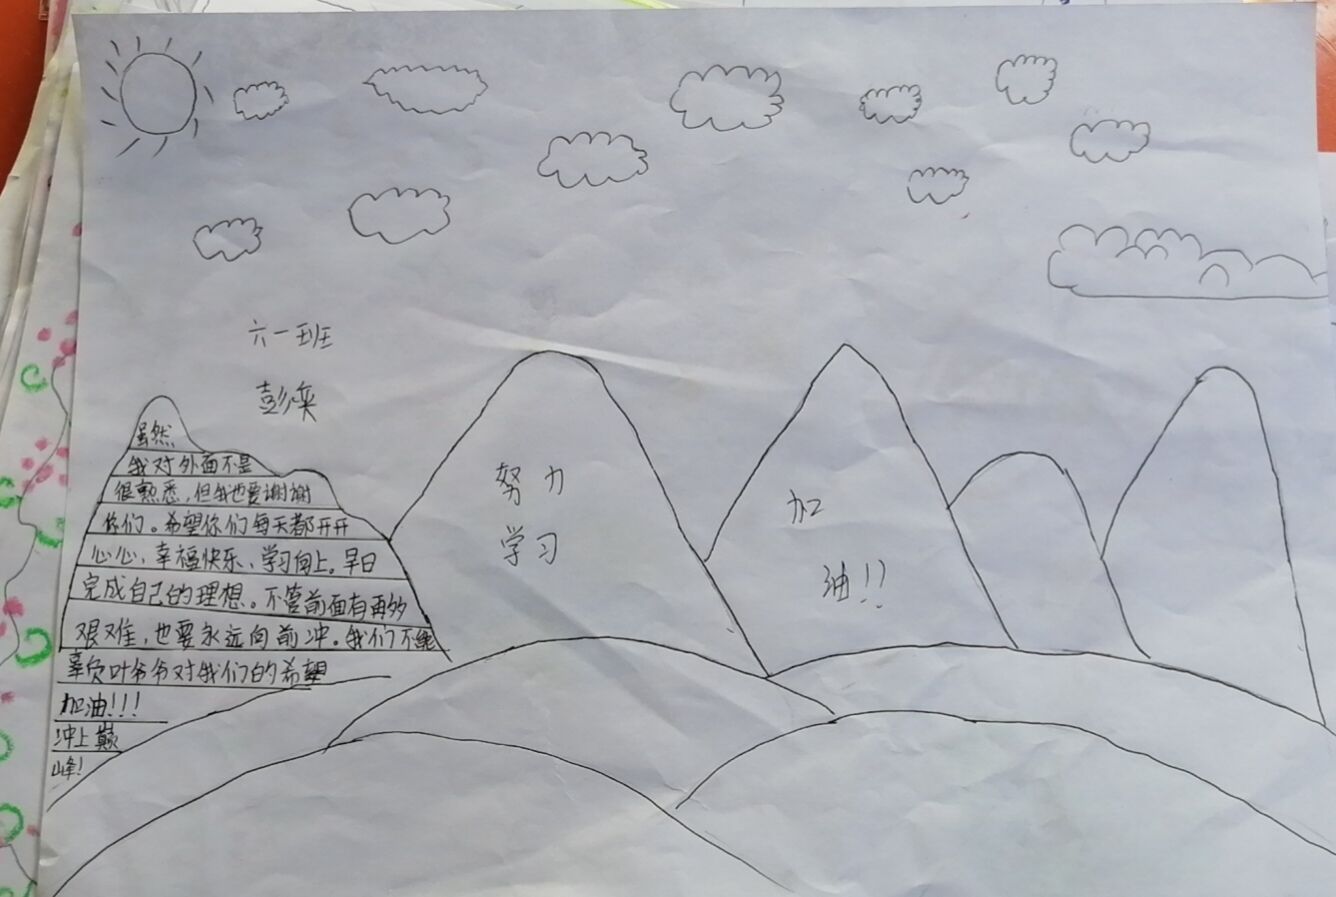 六一班
彭奕
虽然
我对外面不是
很熟悉，但我也要谢谢
你们。希望你们每天都开开
心心、幸福快乐、学习向上。早日
完成自己的理想。不管前面有再多
艰难，也要永远向前冲。我们不能
辜负叶爷爷对我们的希望
加油!!!
冲上巅
峰!
努力
学习
加
油!!